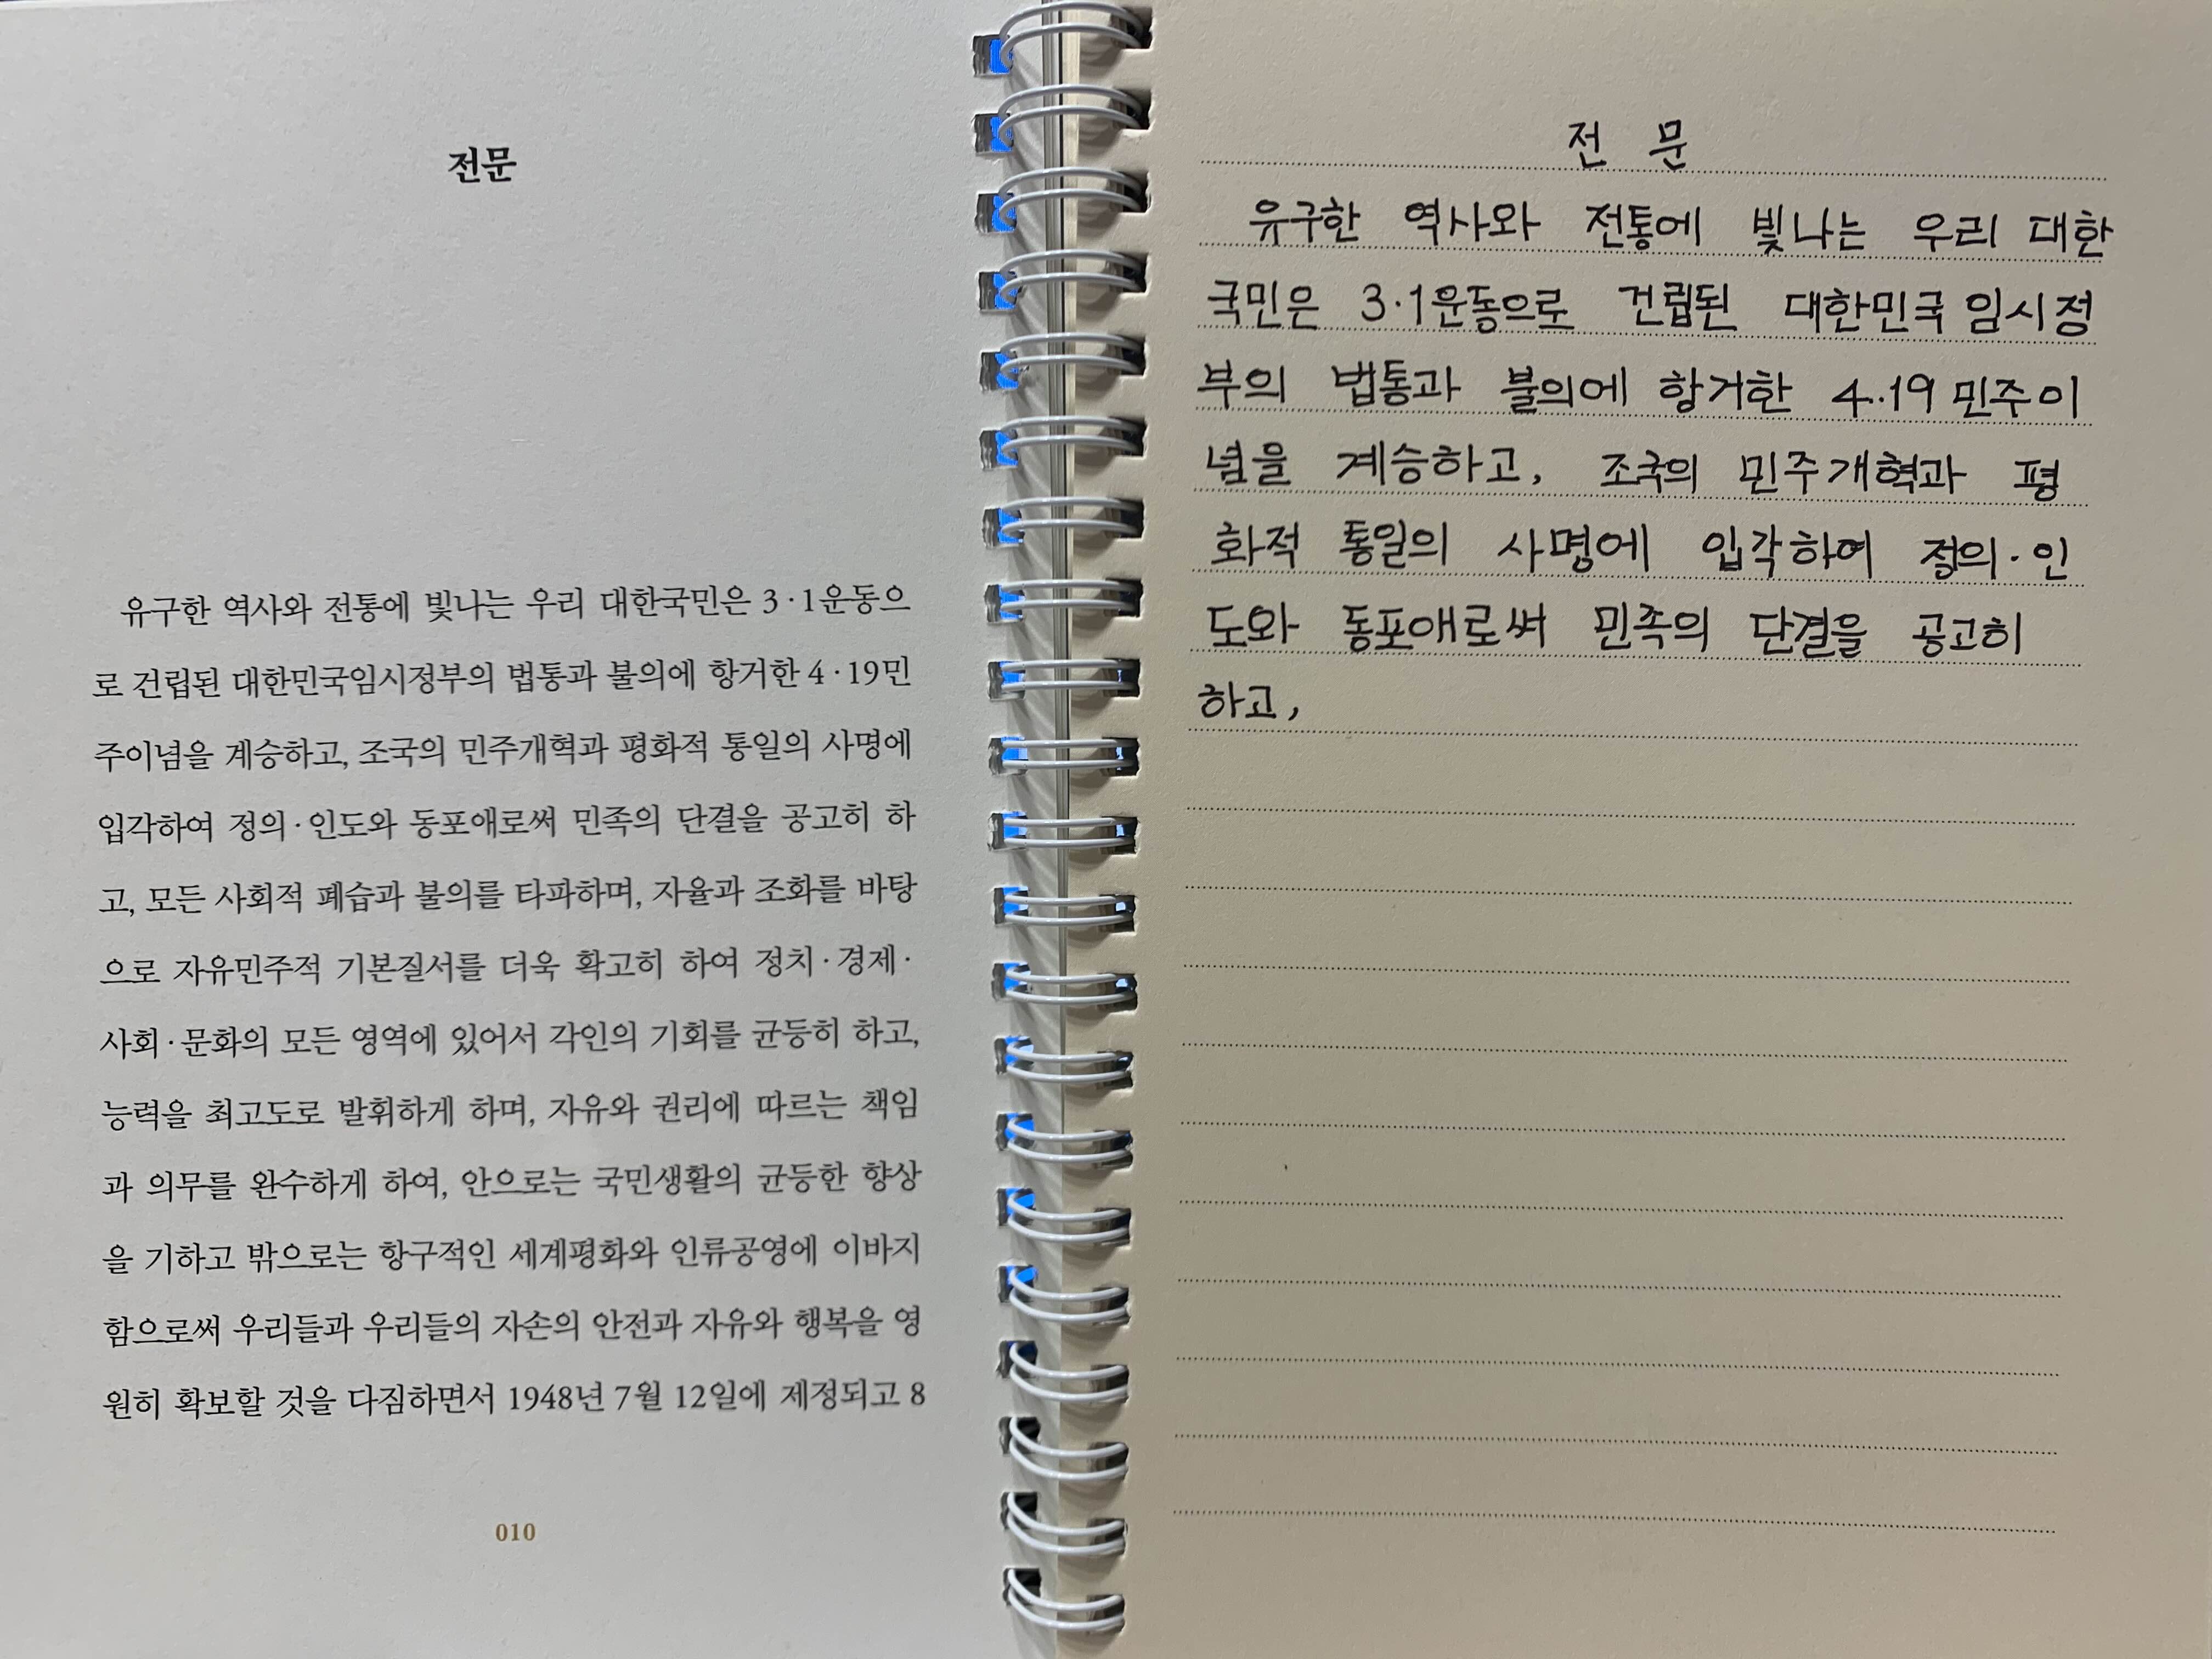 전문
유구한 역사와 전통에 빛나는 우리 대한국민은 3·1운동으
로 건립된 대한민국임시정부의 법통과 불의에 항거한 4·19민
주이념을 계승하고, 조국의 민주개혁과 평화적 통일의 사명에
입각하여 정의·인도와 동포애로써 민족의 단결을 공고히 하
고, 모든 사회적 폐습과 불의를 타파하며, 자율과 조화를 바탕
으로 자유민주적 기본질서를 더욱 확고히 하여 정치·경제·
사회·문화의 모든 영역에 있어서 각인의 기회를 균등히 하고,
능력을 최고도로 발휘하게 하며, 자유와 권리에 따르는 책임
과 의무를 완수하게 하여, 안으로는 국민생활의 균등한 향상
을 기하고 밖으로는 항구적인 세계평화와 인류공영에 이바지
함으로써 우리들과 우리들의 자손의 안전과 자유와 행복을 영
원히 확보할 것을 다짐하면서 1948년 7월 12일에 제정되고 8
010
전 문
유구한 역사와 전통에 빛나는 우리 대한
국민은 3·1운동으로 건립된 대한민국 임시정
부의 법통과 불의에 항거한 4··19 민주이
념을 계승하고, 조국의 민주개혁과 평
화적 통일의 사명에 입각하여 정의·인
도와 동포애로써 민족의 단결을 공고히
하고,